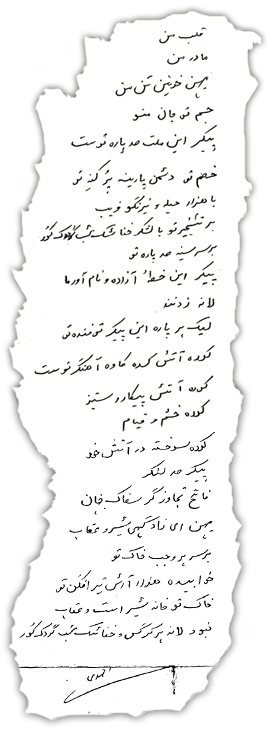 قلب من
مادر من
پیرهن خونین تن من
جسم تو جان منو
پیکر این ملت صد پاره توست
خصم تو دشمن پارینه پر کینه تو
با هزار حیله و نیرنگ و فریب
بر تسخیر تو با لشکر خفاشک شب گردک کور
بر سر سینه صد پاره تو
پیکر این خطهٔ آزاده و نام آور ما
لانه زدند
لیک هر پاره این پیکر تنومنده تو
کوره آتش کده کاوه آهنگر توست
کوره آتش پیکار و ستیز
کوره خشم و قیام
کوره سوخته در آتش خود
پیکر صد لشکر
فاتح تجاوزگر سفاک جهان
میهن ای زادگهی شیر و عقاب
بر سر هر وجب خاک تو
خوابیده هزار آرش تیر افکن تو
خاک تو خانه شیر است و عقاب
نبود لانه هر کرکس و خفاشک شب گردک کور